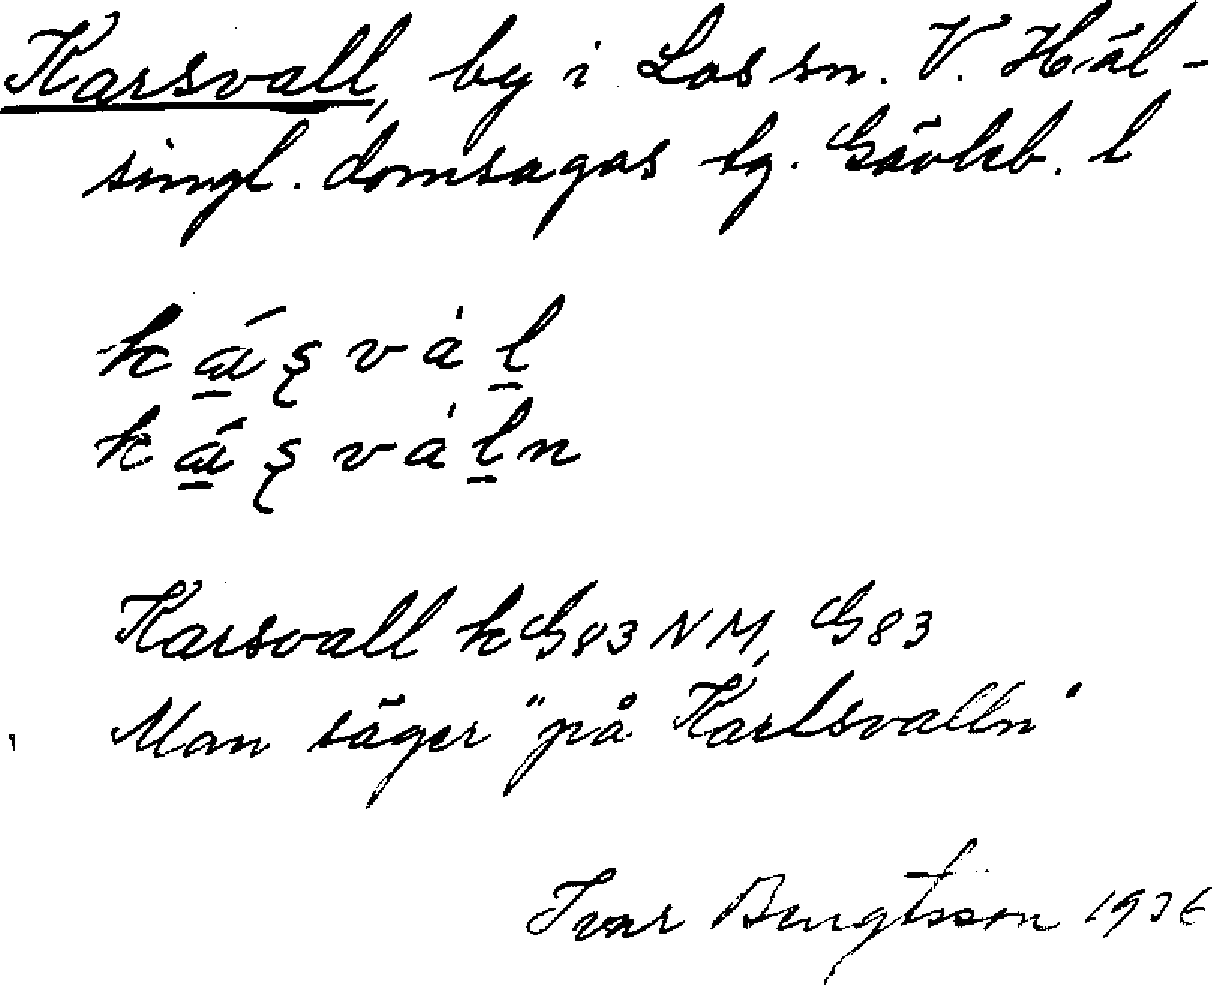 Karsvall, by i Los sn. V. Häl-
singl. domsagas tg. Gävleb. l
k á̱ ʂ v à ḻ
k á̱ ʂ v à ḻ n
Karsvall k G83 NM, G83
Man säger "på Karlsvalln"
Ivar Bengtsson 1936